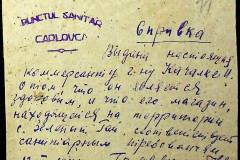 PUNCTUL SANITAR
CADLOVCA
Справка
Выдана настоящая
коммерсанту г-ну
О том, что он является
здоровым, и что его магазин,
находящийся на территории
с. Зелений Гай, соответствует
санитарным требованиям